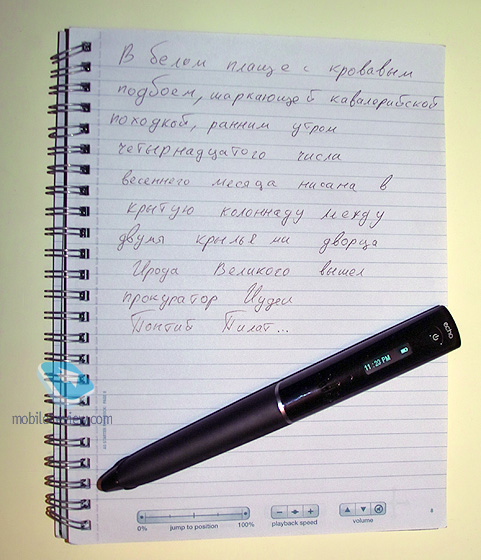 В белом плаще с кровавым
подбоем, шаркающей кавалерийской
походкой, ранним утром
четырнадцатого числа
весеннего месяца нисана в
крытую колоннаду между
двумя крыльями дворца
Ирода Великого вышел
прокуратор Иудеи
Понтий Пилат...
echo
11:33 PM
mobile-review.com
0% jump to position 100%
playback speed
volume
8